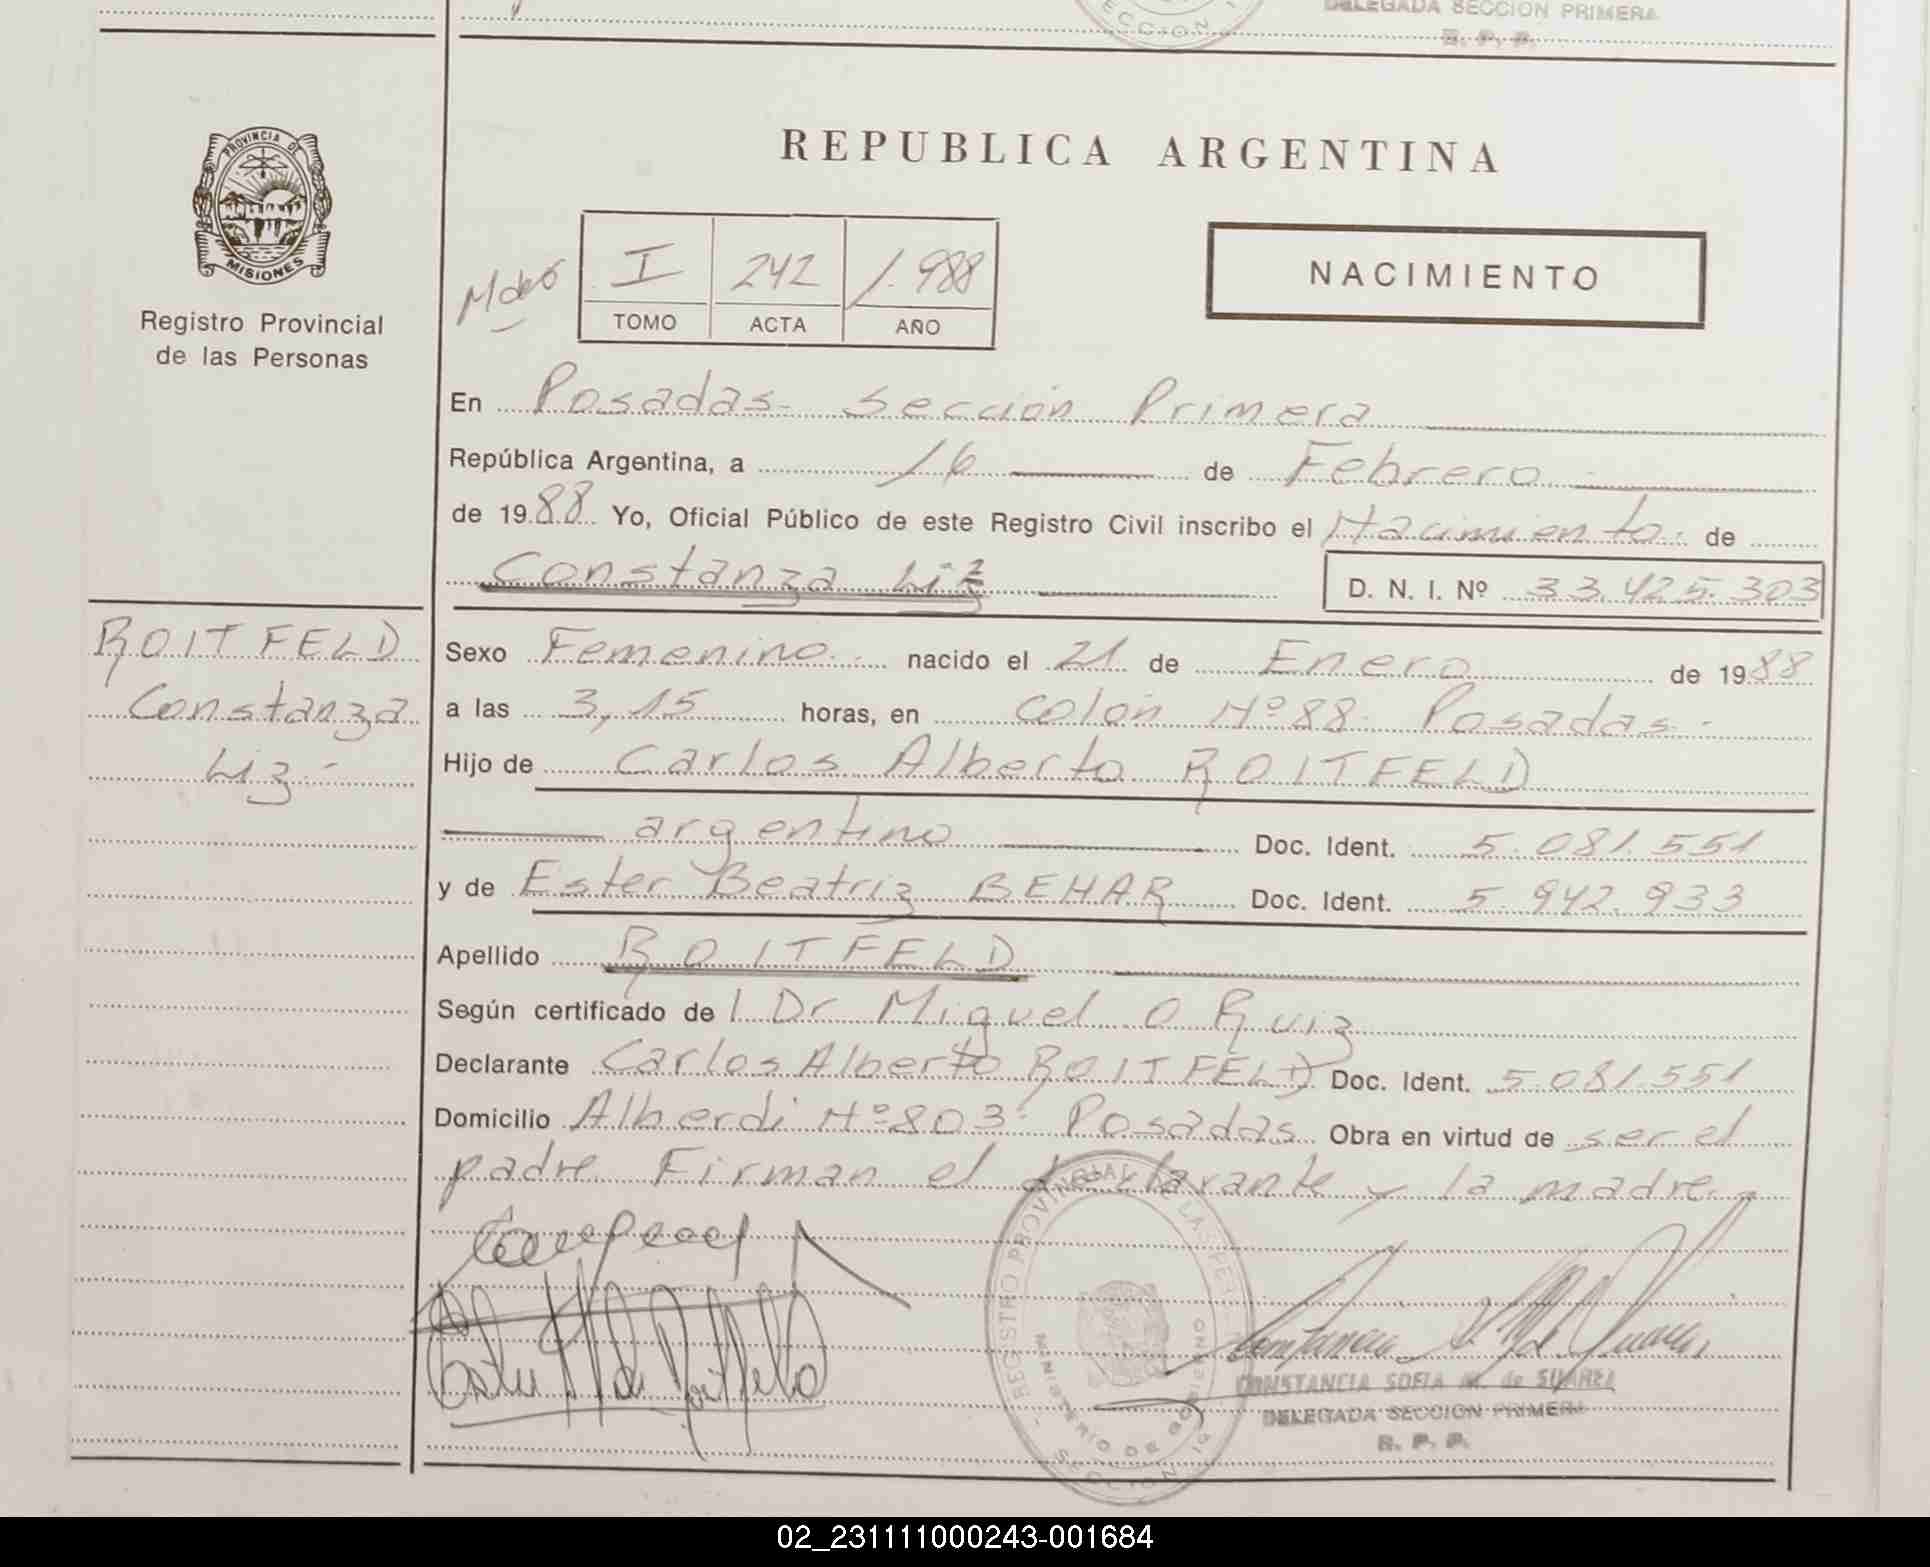 DELEGADA SECCION PRIMERA
R. P. P.
PROVINCIA DE
MISIONES
Registro Provincial
de las Personas
REPUBLICA ARGENTINA
I 242 1.988
TOMO ACTA AÑO
NACIMIENTO
En Posadas - Sección Primera
República Argentina, a 16 de Febrero
de 1988 Yo, Oficial Público de este Registro Civil inscribo el Nacimiento de
Constanza Liz D. N. I. Nº 33.425.303
ROITFELD
Constanza
Liz -
Sexo Femenino nacido el 21 de Enero de 1988
a las 3,15 horas, en Colón Nº 88 - Posadas -
Hijo de Carlos Alberto ROITFELD
argentino Doc. Ident. 5.081.551
y de Ester Beatriz BEHAR Doc. Ident. 5.942.933
Apellido ROITFELD
Según certificado de l Dr Miguel O Ruiz
Declarante Carlos Alberto ROITFELD Doc. Ident. 5.081.551
Domicilio Alberdi Nº 803 - Posadas Obra en virtud de ser el
padre. Firman el declarante y la madre
REGISTRO PROVINCIAL DE LAS PERSONAS
MINISTERIO DE GOBIERNO
SECCION 1ª
CONSTANCIA SOFIA M. de SUAREZ
DELEGADA SECCION PRIMERA
R. P. P.
02_231111000243-001684